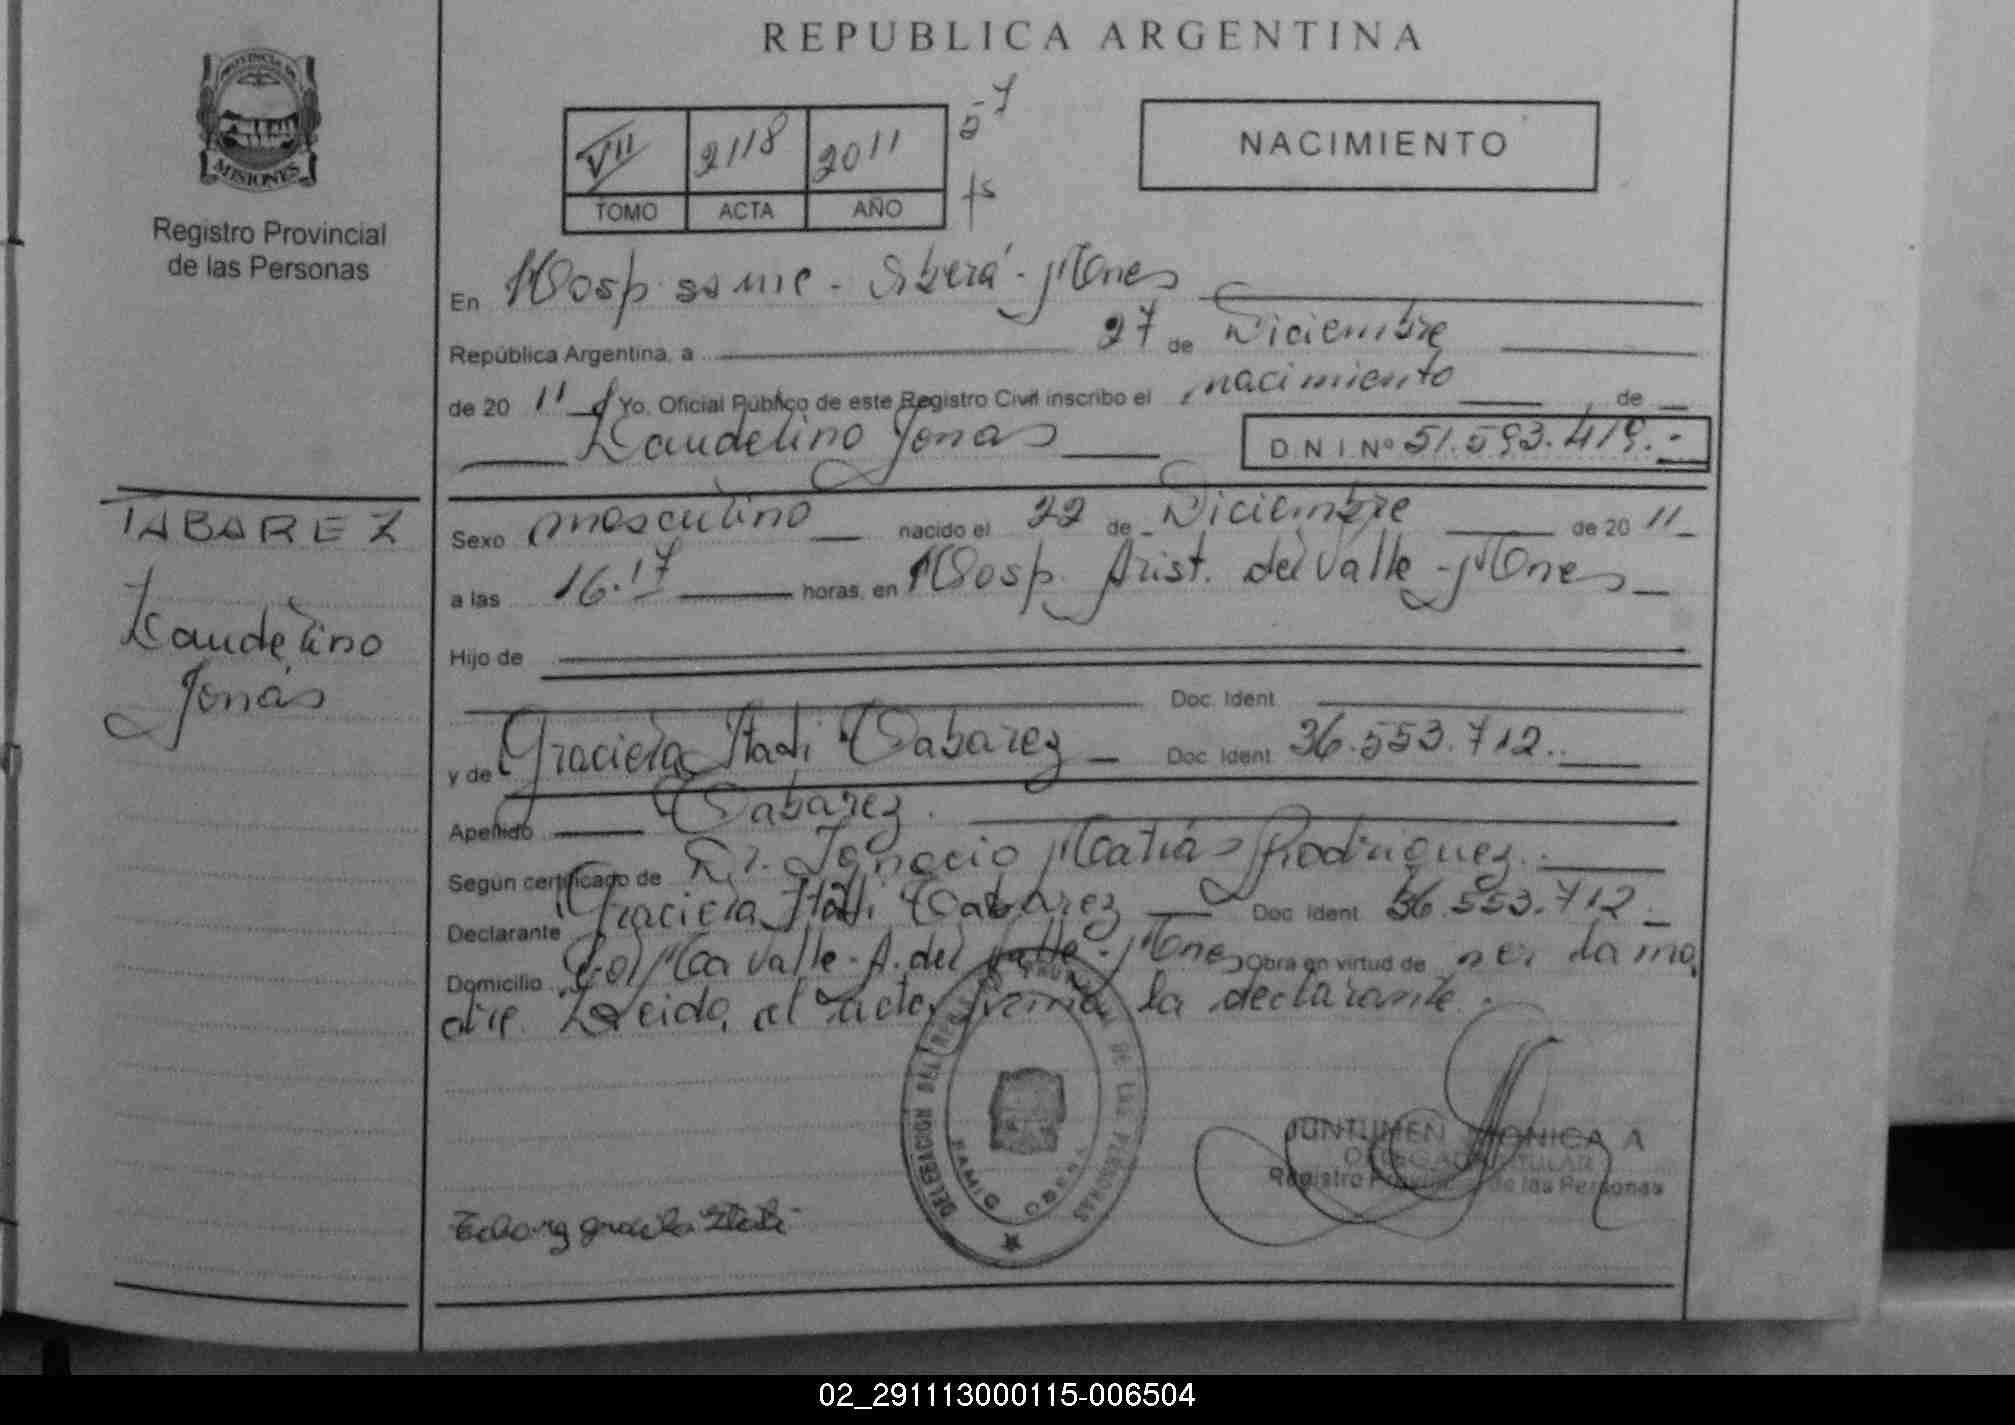 REPUBLICA ARGENTINA
PROVINCIA DE
MISIONES
Registro Provincial
de las Personas
VII 2118 2011
TOMO ACTA AÑO
NACIMIENTO
En Hosp. - Oberá - Mnes
República Argentina, a 27 de Diciembre
de 20 11 Yo. Oficial Público de este Registro Civil inscribo el nacimiento de
Laudelino Jonas D.N.I.Nº 51.593.419.-
TABAREZ
Laudelino
Jonás
Sexo masculino nacido el 22 de Diciembre de 20 11
a las 16.17 horas, en Hosp. Arist. del Valle - Mnes
Hijo de
Doc. Ident
y de Graciela Itati Tabarez Doc. Ident 36.553.712.
Apellido Tabarez.
Según certificado de Dr. Ignacio Matías Rodriguez.
Declarante Graciela Itati Tabarez Doc. Ident 36.553.712.
Domicilio Valle - A. del Valle - Mnes Obra en virtud de ser la ma
dre. Leida el acta, firma la declarante.
DELEGACION DEL REG. PROVINCIAL DE LAS PERSONAS
JUNTUMEN MONICA A
DELEGADA TITULAR
Registro Provincial de las Personas
02_291113000115-006504